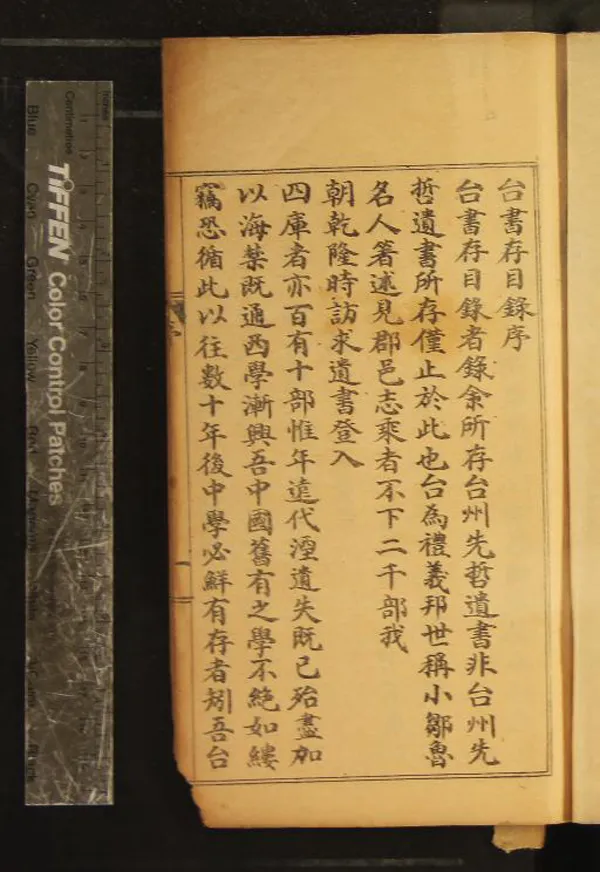 台書存目錄序
台書存目錄者錄余所存台州先哲遺書非台州先
哲遺書所存僅止於此也台為禮義邦世稱小鄒魯
名人箸述見郡邑志乘者不下二千部我
朝乾隆時訪求遺書登入
四庫者亦百有十部惟年遠代湮遺失既已殆盡加
以海禁既通西學漸興吾中國舊有之學不絕如縷
竊恐循此以往數十年後中學必鮮有存者矧吾台
序
一
Inches
Centimetres
TIFFEN Color Control Patches
Blue
Cyan
Green
Yellow
Red
Black